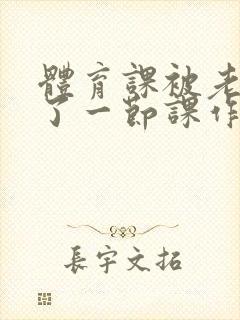 體育課被老
了一節課作
長宇文拓